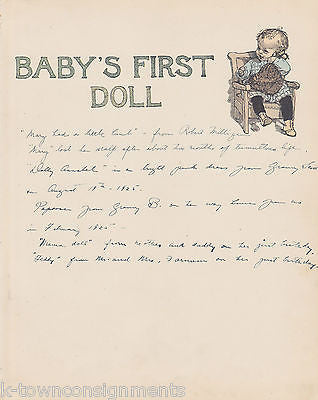 BABY'S FIRST
DOLL
"Mary had a little lamb" - from Robert
"Mary" lost her stuff after about two months of
"Dolly Annabel" in a bright pink dress from Granny
on August 18th - 1925.
from Granny B. on her way home from us
in February 1925 -
"Mama doll" from mother and daddy on her first birthday.
"Teddy" from Mr. and Mrs. on her first birthday.
k-townconsignments